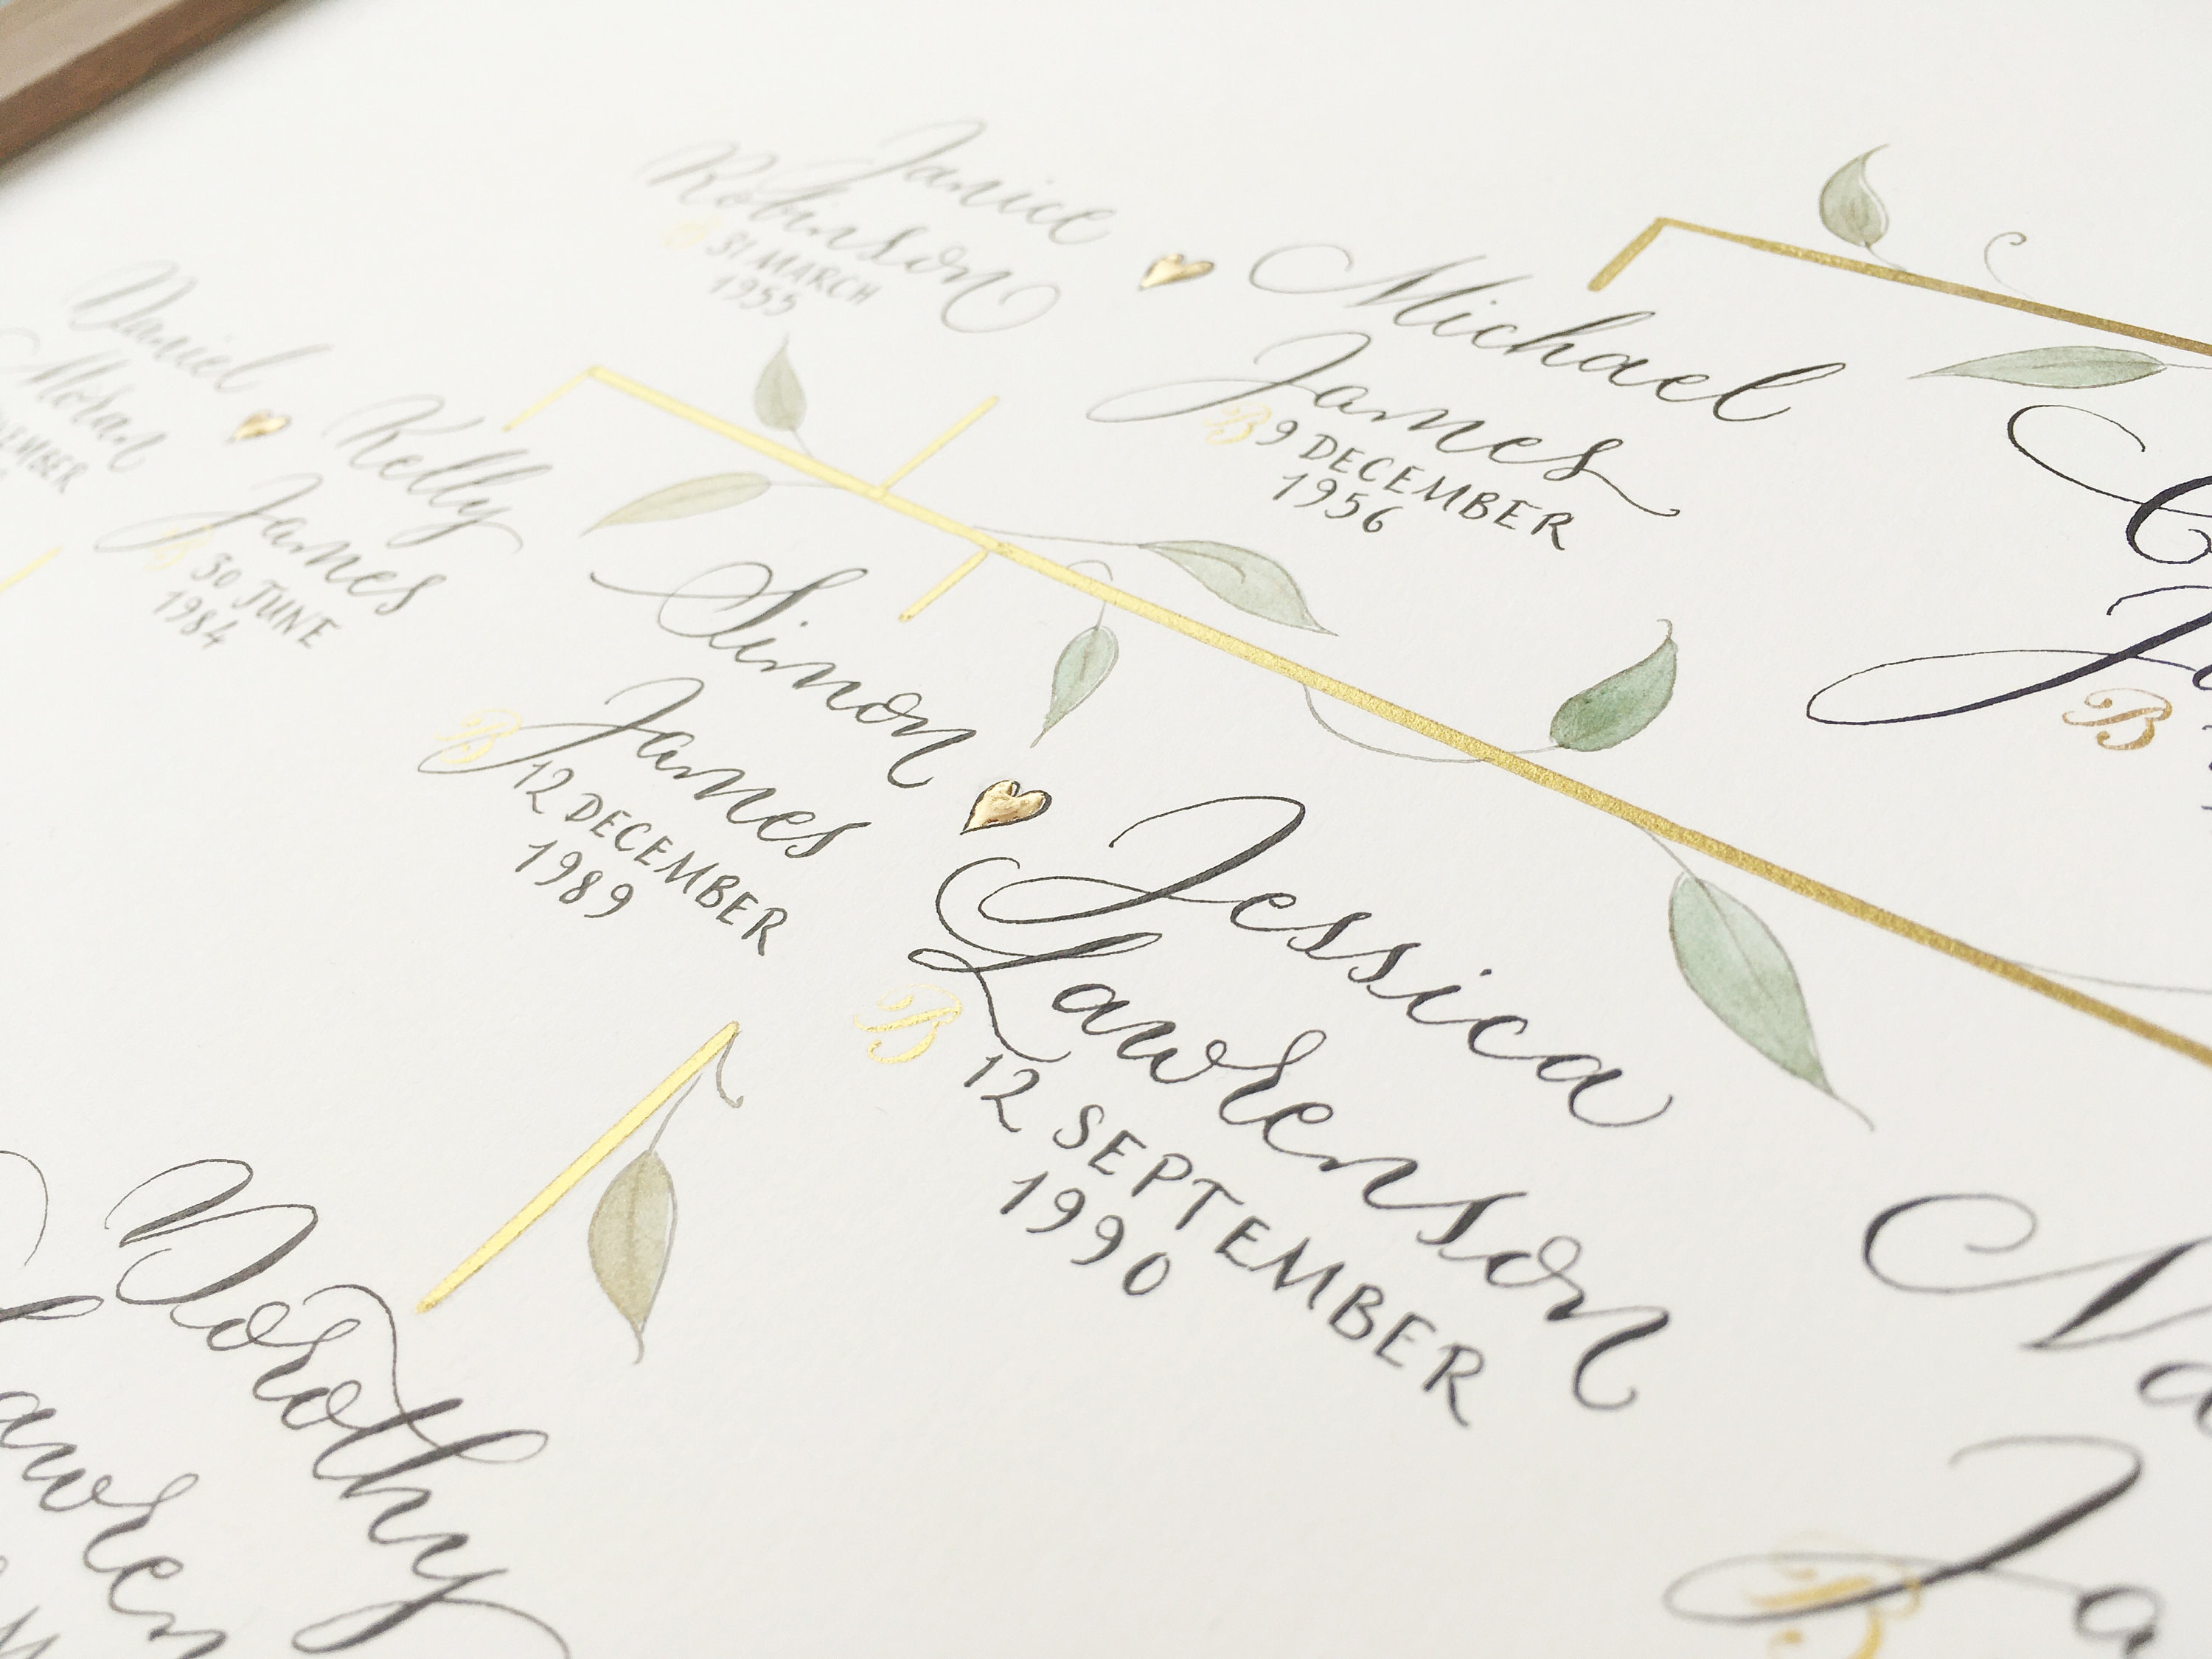 Janice
Robinson
B 31 MARCH
1955
Michael
James
B 9 DECEMBER
1956
Daniel
Moran
Kelly
James
B 30 JUNE
1984
Simon
James
B 12 DECEMBER
1989
Jessica
Lawrenson
B 12 SEPTEMBER
1990
B
Dorothy
B